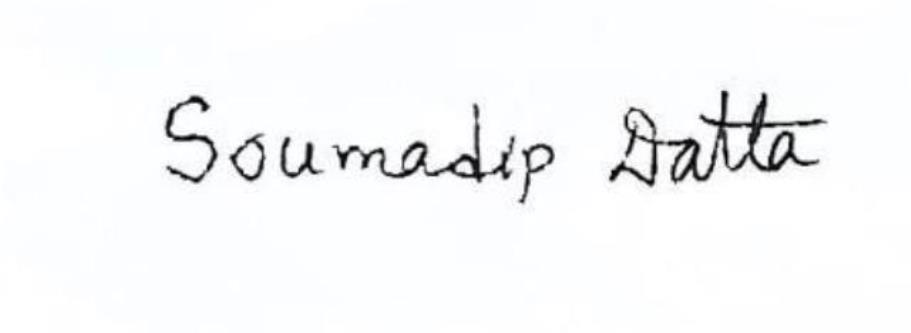 Soumadip Datta